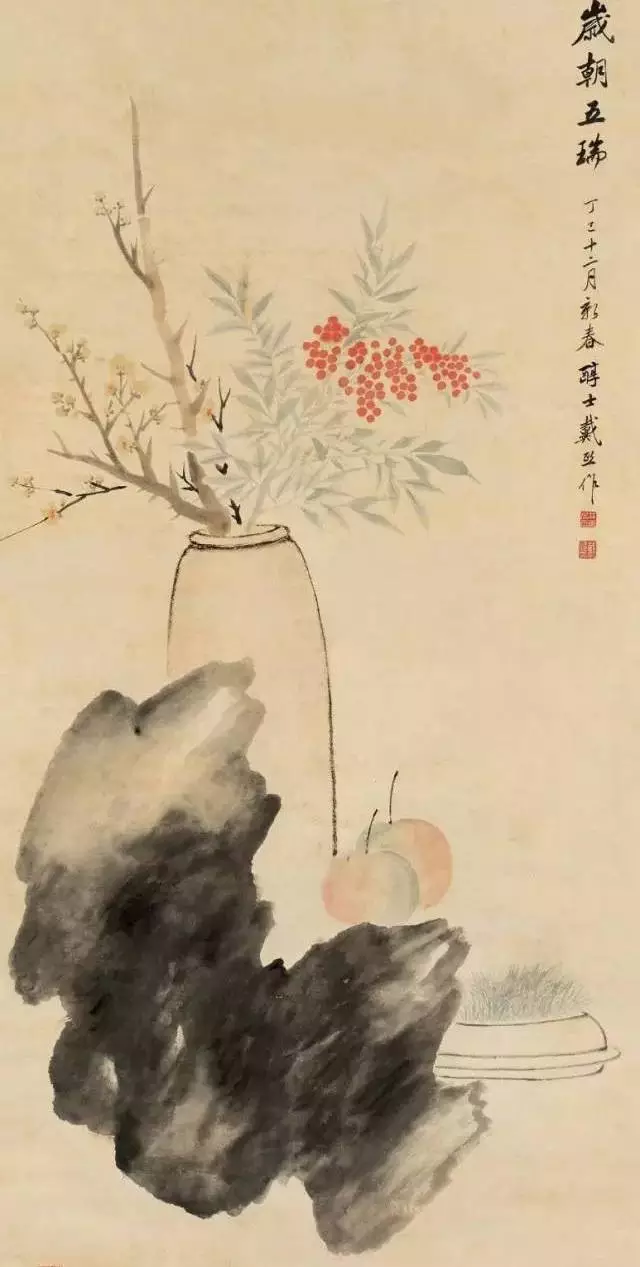 歲朝五瑞
丁巳十二月新春醇士戴熙作